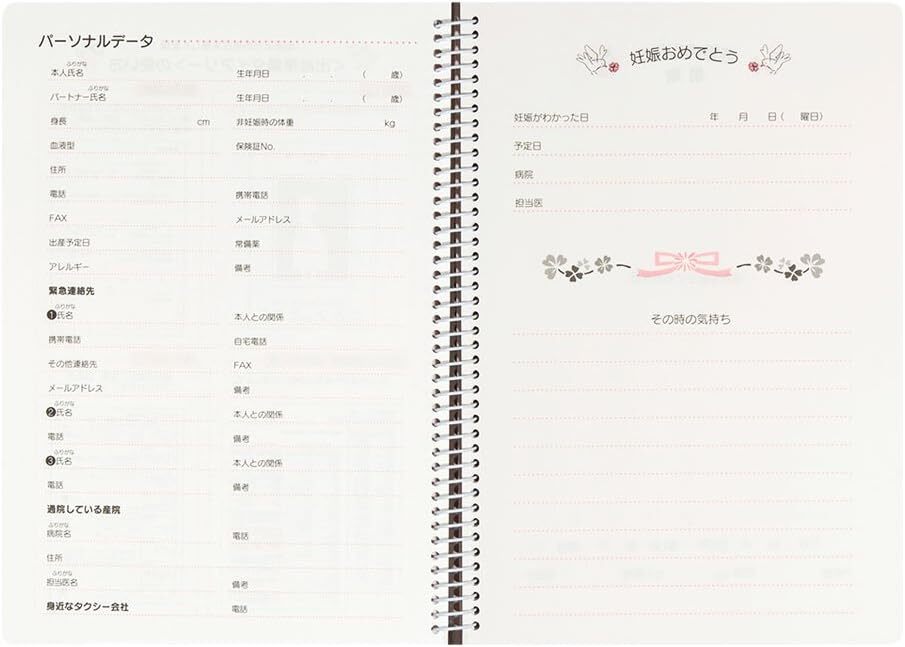 パーソナルデータ
ふりがな
本人氏名 生年月日 . . ( 歳)
ふりがな
パートナー氏名 生年月日 . . ( 歳)
身長 cm 非妊娠時の体重 kg
血液型 保険証No.
住所
電話 携帯電話
FAX メールアドレス
出産予定日 常備薬
アレルギー 備考
緊急連絡先
ふりがな
❶氏名 本人との関係
携帯電話 自宅電話
その他連絡先 FAX
メールアドレス 備考
ふりがな
❷氏名 本人との関係
電話 備考
ふりがな
❸氏名 本人との関係
電話 備考
通院している産院
ふりがな
病院名 電話
住所
ふりがな
担当医名 備考
身近なタクシー会社 電話
妊娠おめでとう
妊娠がわかった日 年 月 日( 曜日)
予定日
病院
担当医
その時の気持ち